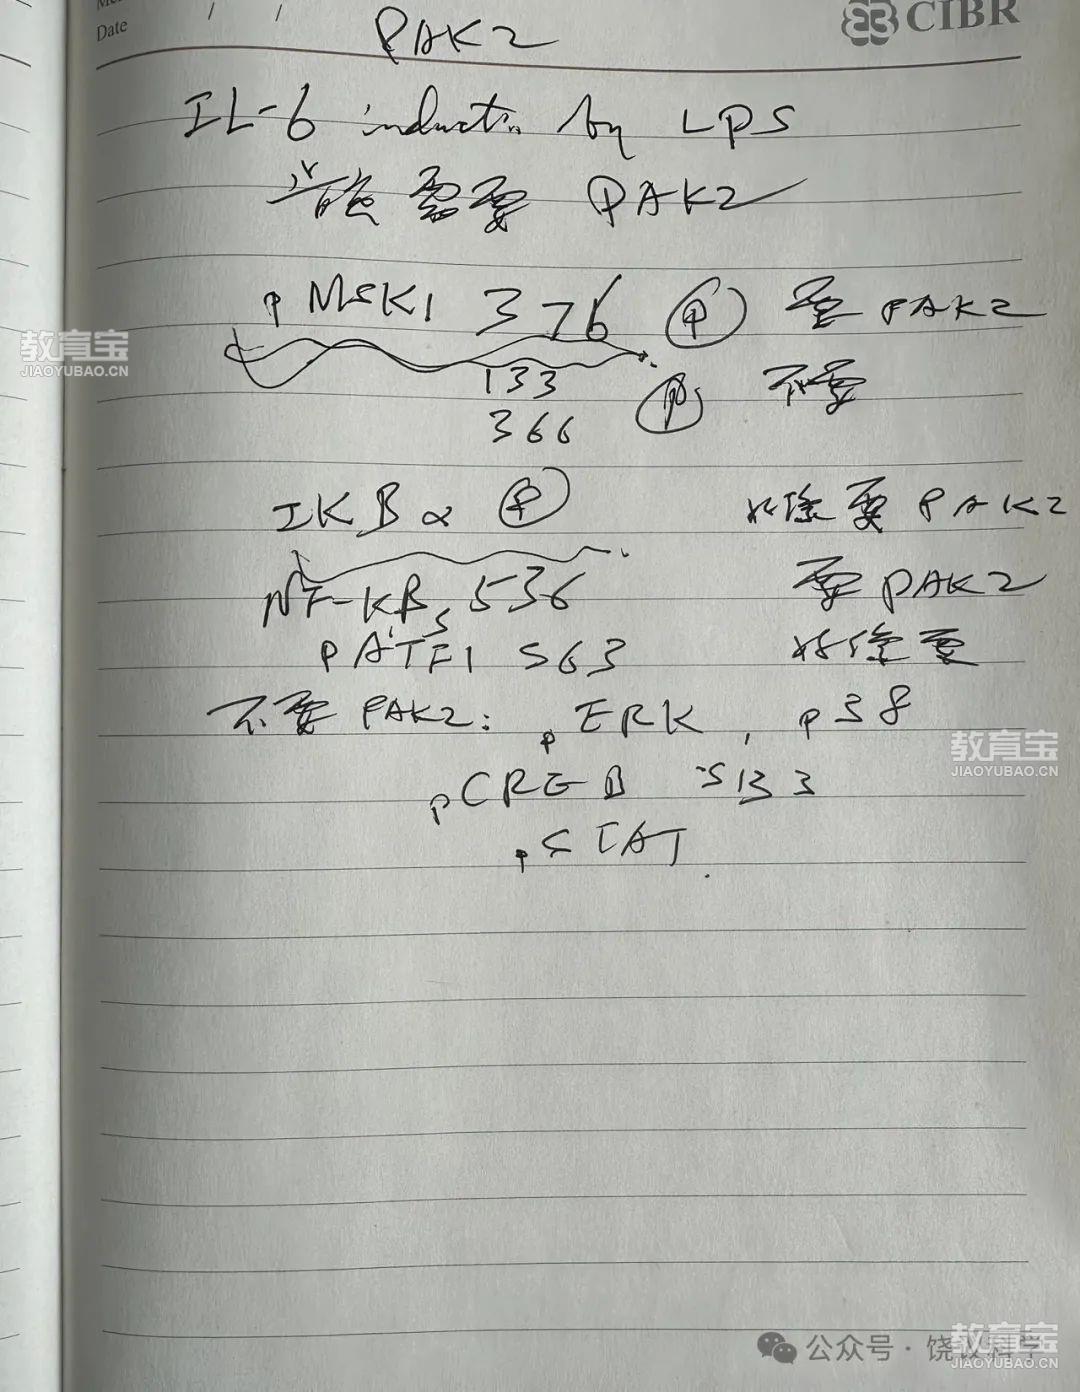 Date / /
CIBR
PAK2
IL-6 induction by LPS
需要 PAK2
pMSK1 376 P 要 PAK2
133
366 P 不要
IKBα P 好像要 PAK2
NF-KB, S536 要 PAK2
pATF1 S63 好像要
不要 PAK2: pERK, p38
pCREB S133
pSTAT.
教育宝
JIAOYUBAO.CN
教育宝
JIAOYUBAO.CN
公众号·饶议科学
教育宝
JIAOYUBAO.CN